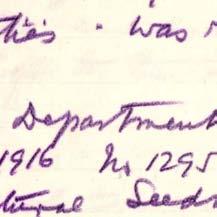 ties. was
Department
1916 No 1295
Seeds